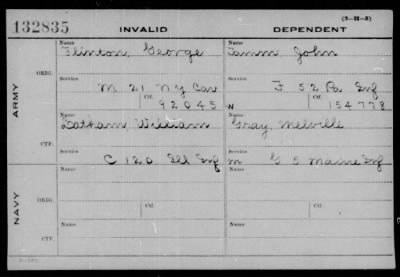 132835 INVALID DEPENDENT (3-21-3)
ARMY
ORIG.
Name Name
Flinton, George Tamm John
Service Service
M 21 N.Y Cav F 52 Pa Inf
Ctf. Ctf.
92045 W 154778
CTF.
Name Name
Latham, William Gray, Melville
Service Service
C 120 Ill Inf m G 5 Maine Inf
NAVY
ORIG.
Name Name
Service Ctf. Service Ctf.
CTF.
Name Name